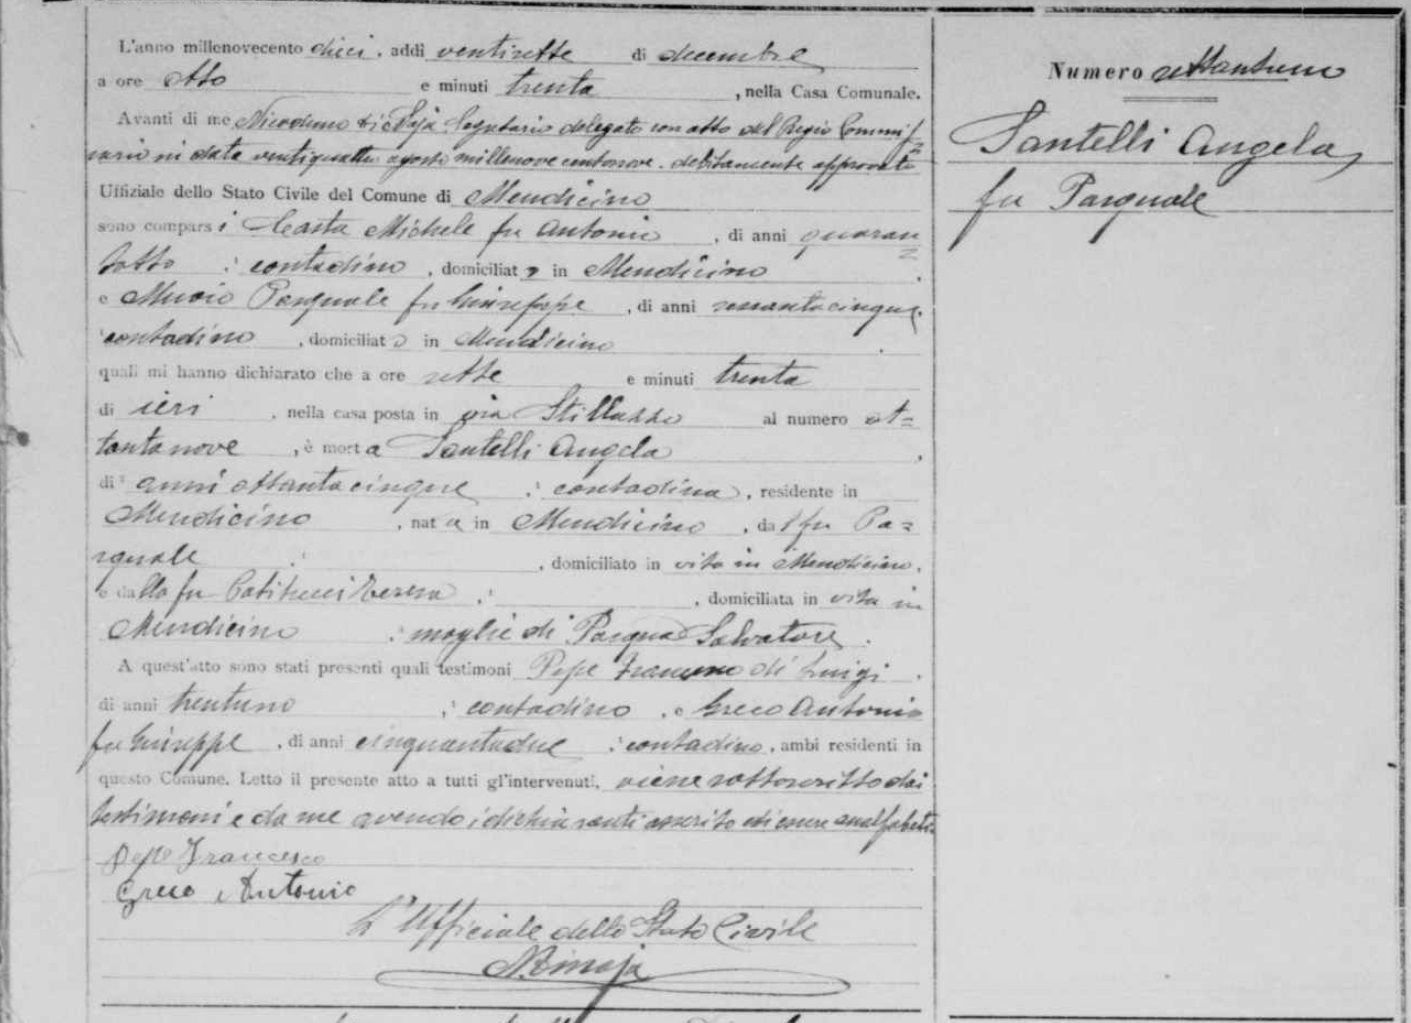 L'anno millenovecento dieci, addì ventisette di decembre
a ore otto e minuti trenta, nella Casa Comunale.
Avanti di me Nicodemo Segretario delegato con atto del Regio Commis=
sario in data ventiquattro agosto millenovecentonove, debitamente approvato
Uffiziale dello Stato Civile del Comune di Mendicino
sono comparsi Casta Michele fu Antonio, di anni quaran=
totto, contadino, domiciliato in Mendicino
e Muoio Pasquale fu Giuseppe, di anni sessantacinque,
contadino, domiciliato in Mendicino
quali mi hanno dichiarato che a ore sette e minuti trenta
di ieri, nella casa posta in via al numero ot=
tantanove, è morta Santelli Angela
di anni ottantacinque, contadina, residente in
Mendicino, nata in Mendicino, dal fu Pa=
squale, domiciliato in vita in Mendicino,
e dalla fu Teresa, domiciliata in vita in
Mendicino, moglie di Pasqua Salvatore.
A quest'atto sono stati presenti quali testimoni Pepe Francesco di Luigi,
di anni trentuno, contadino, e Greco Antonio
fu Giuseppe, di anni cinquantadue, contadino, ambi residenti in
questo Comune. Letto il presente atto a tutti gl'intervenuti, viene sottoscritto dai
testimoni e da me avendo i dichiaranti asserito di essere analfabeti.
Pepe Francesco
Greco Antonio
L'Ufficiale dello Stato Civile
Numero ottantuno
Santelli Angela
fu Pasquale